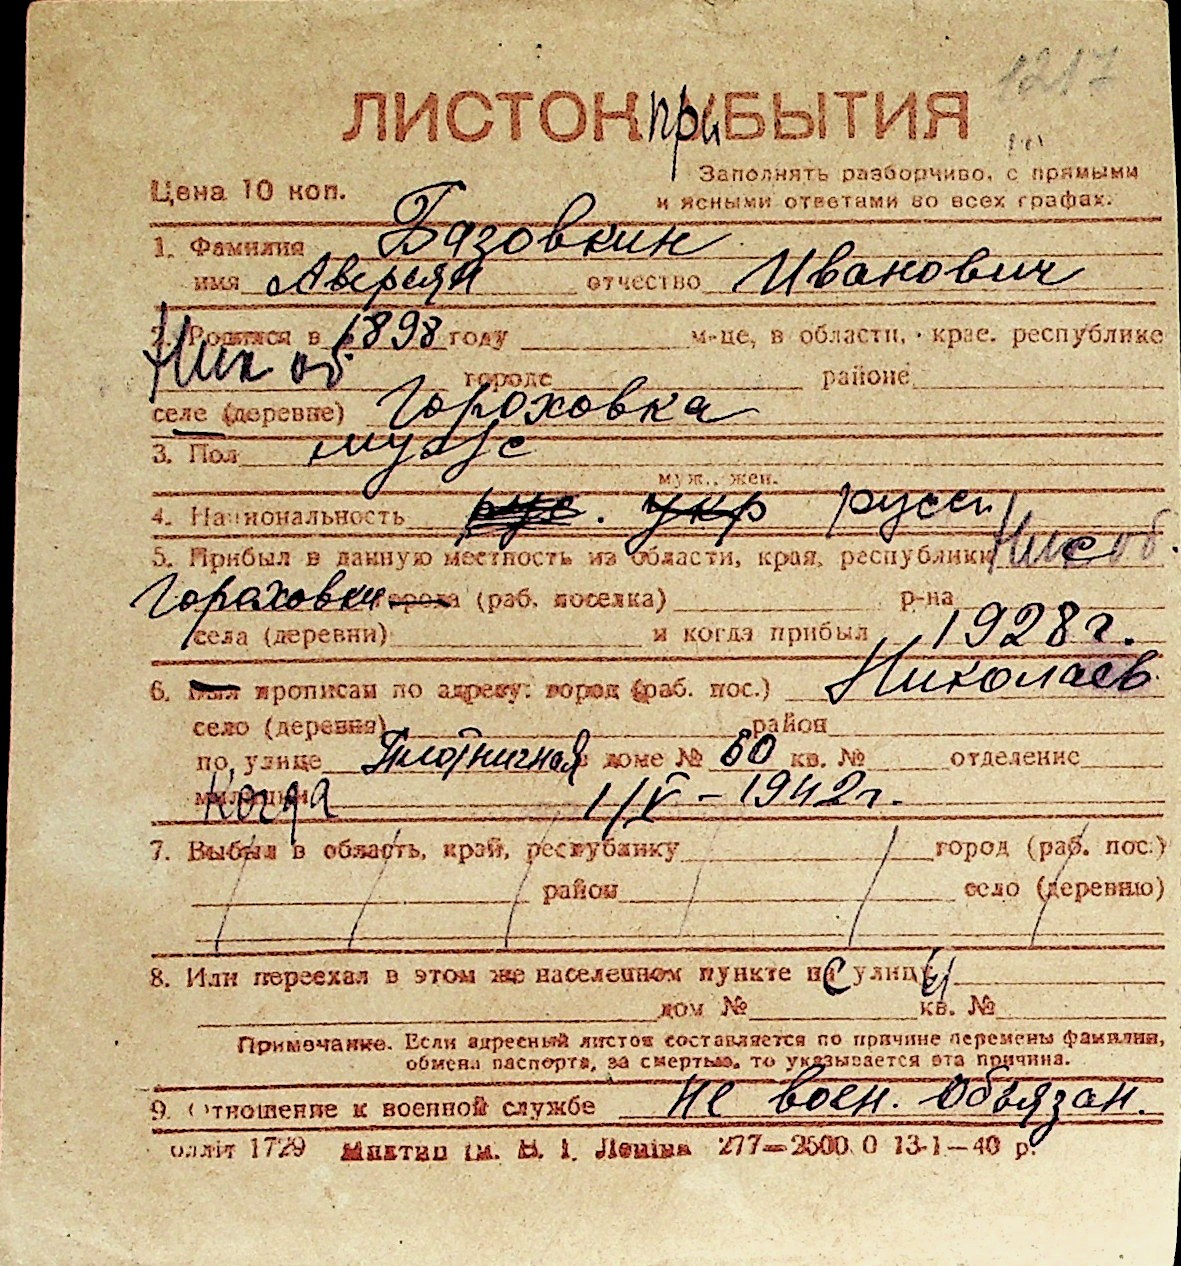 1217
ЛИСТОК прибЫТИЯ
Цена 10 коп.
Заполнять разборчиво, с прямыми
и ясными ответами во всех графах.
1. Фамилия Базовкин
имя Аверьян отчество Иванович
2. Родился в 1898 году м-це, в области, крае, республике
Ник об. городе районе
селе (деревне) Гороховка
3. Пол мужс
муж., жен.
4. Национальность рус. укр русск
5. Прибыл в данную местность из области, края, республики Ник об.
Гораховки города (раб. поселка) р-на
села (деревни) и когда прибыл 1928 г.
6. Был прописан по адресу: город (раб. пос.) Николаев
село (деревня) район
по улице Плотничная доме № 60 кв. № отделение
милиции Когда 1/V - 1942 г.
7. Выбыл в область, край, республику город (раб. пос.)
район село (деревню)
8. Или переехал в этом же населенном пункте с улицы
дом № кв. №
Примечание. Если адресный листок составляется по причине перемены фамилии,
обмена паспорта, за смертью, то указывается эта причина.
9. Отношение к военной службе Не воен. Обьязан.
олліт 1729 Миктип ім. В. І. Леніна 277—2500 0 13-1—40 р.